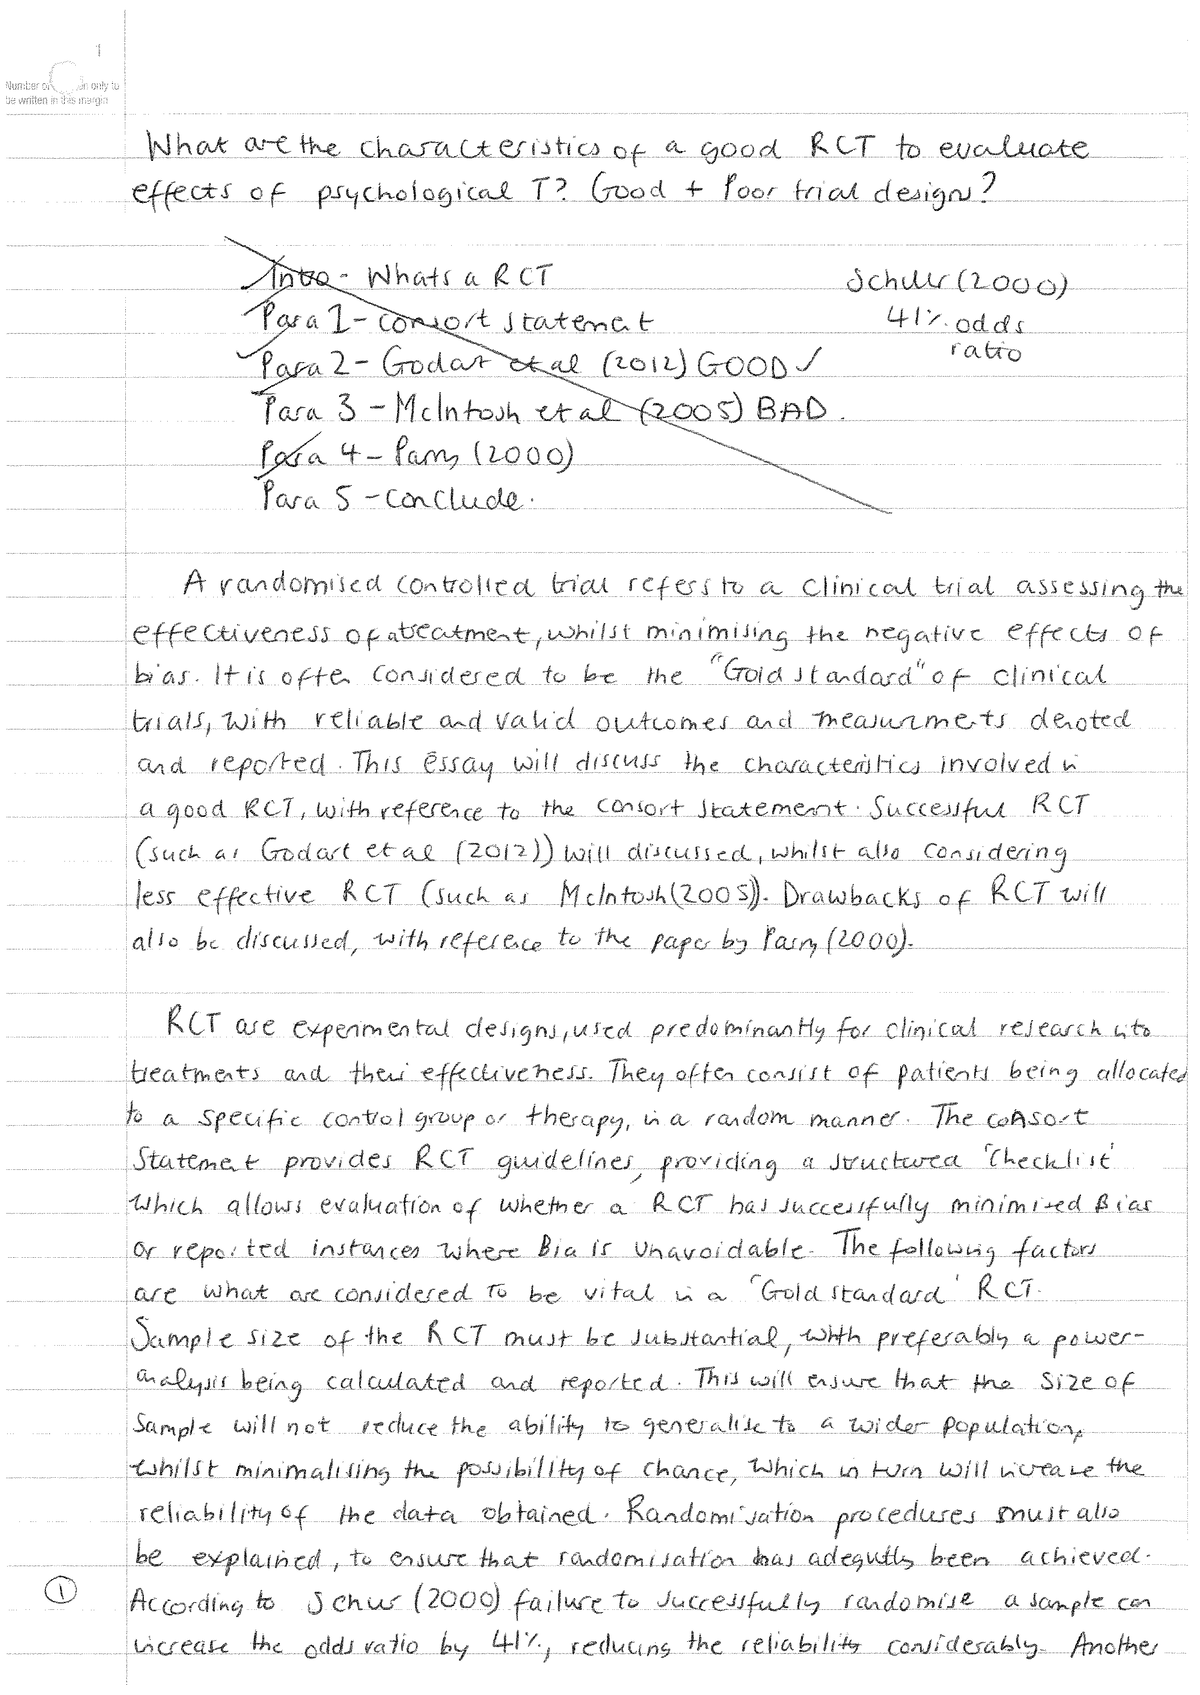 1
Number of only to
be written in this margin
What are the characteristics of a good RCT to evaluate
effects of psychological T? Good + Poor trial design?
Intro - Whats a RCT
Schur (2000)
Para 1 - consort statement
41% odds
ratio
Para 2 - Godart et al (2012) GOOD ✓
Para 3 - McIntosh et al (2005) BAD.
Para 4 - Parry (2000)
Para 5 - conclude.
A randomised controlled trial refers to a clinical trial assessing the
effectiveness of a treatment, whilst minimising the negative effects of
bias. It is often considered to be the "Gold standard" of clinical
trials, with reliable and valid outcomes and measurments denoted
and reported. This essay will discuss the characteristics involved in
a good RCT, with reference to the consort statement. Successful RCT
(such as Godart et al (2012)) will discussed, whilst also considering
less effective RCT (such as McIntosh (2005)). Drawbacks of RCT will
also be discussed, with reference to the paper by Parry (2000).
RCT are experimental designs, used predominantly for clinical research into
treatments and their effectiveness. They often consist of patients being allocated
to a specific control group or therapy, in a random manner. The consort
Statement provides RCT guidelines, providing a structured 'checklist'
which allows evaluation of whether a RCT has successfully minimised Bias
or reported instances where Bia is unavoidable. The following factors
are what are considered to be vital in a 'Gold standard' RCT.
Sample size of the RCT must be substantial, with preferably a power-
analysis being calculated and reported. This will ensure that the size of
sample will not reduce the ability to generalise to a wider population,
whilst minimalising the possibility of chance, which in turn will increase the
reliability of the data obtained. Randomisation procedures must also
be explained, to ensure that randomisation has adequtly been achieved.
1
According to Schur (2000) failure to successfully randomise a sample can
increase the odds ratio by 41%, reducing the reliability considerably. Another